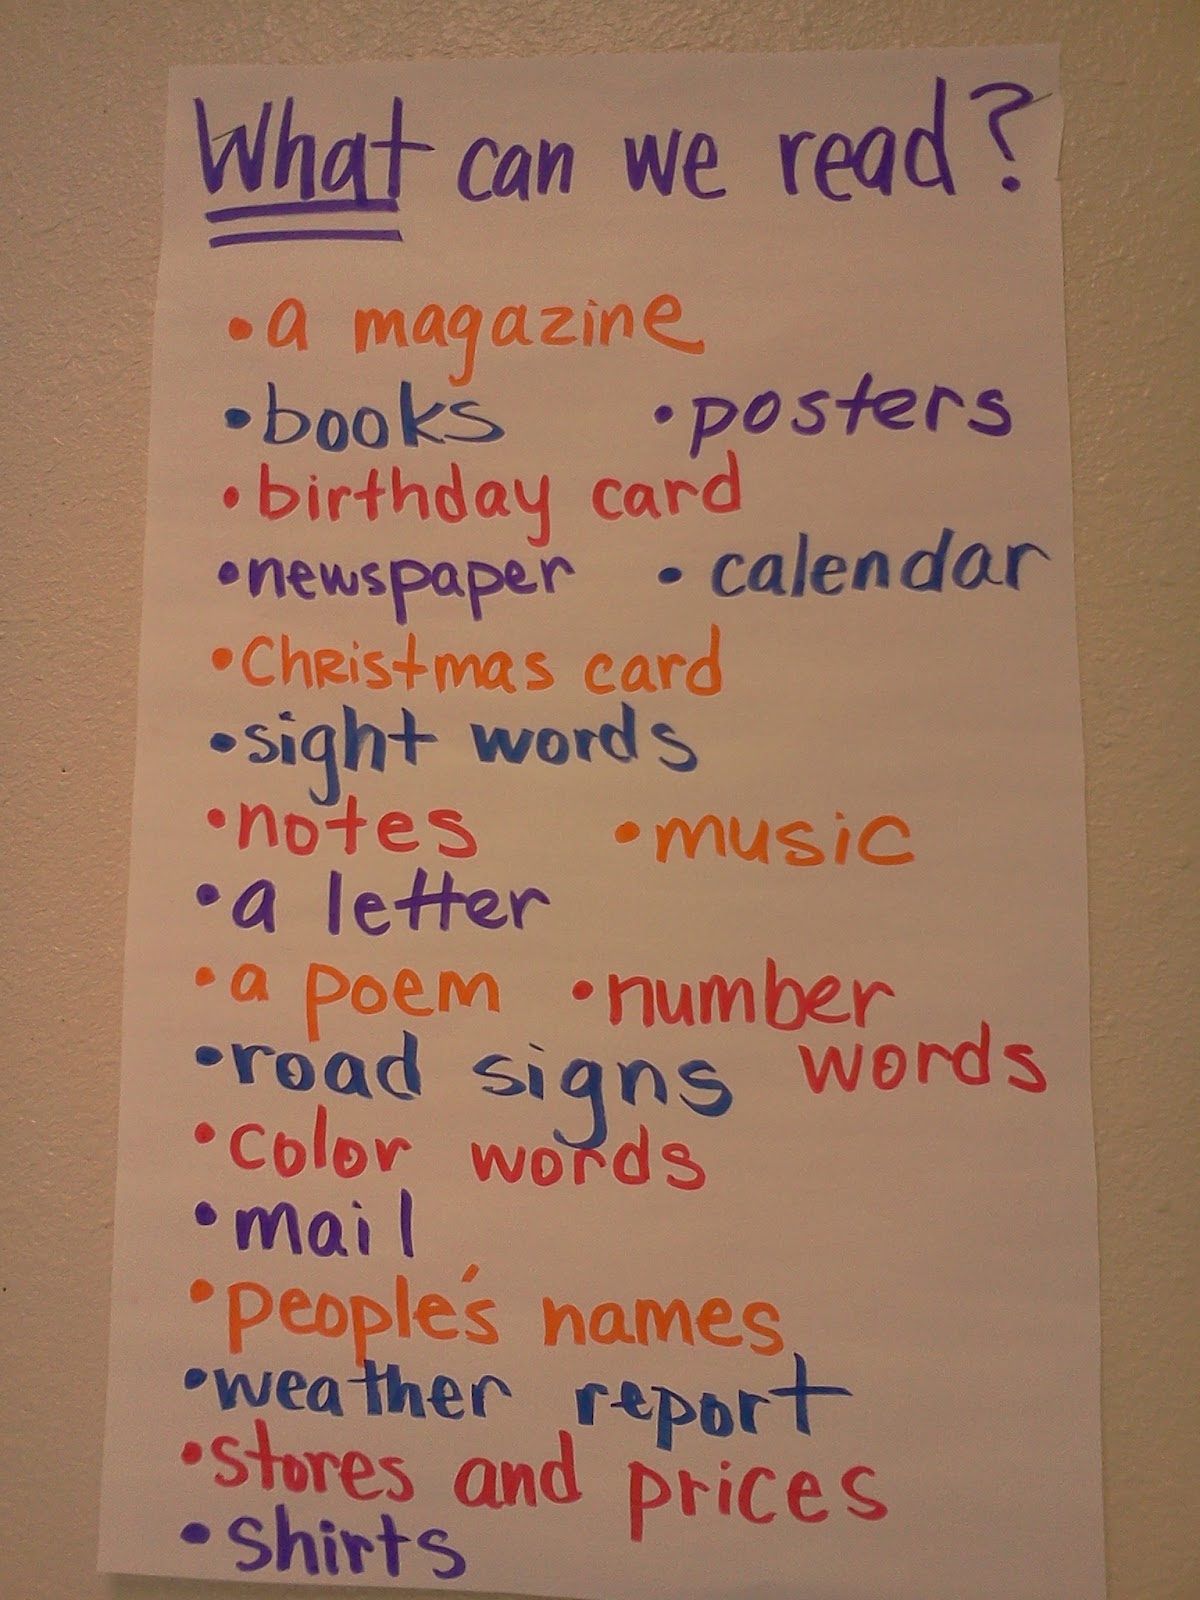 What can we read?
• a magazine
• books • posters
• birthday card
• newspaper • calendar
• Christmas card
• sight words
• notes • music
• a letter
• a poem • number
• road signs words
• color words
• mail
• people's names
• weather report
• stores and prices
• shirts